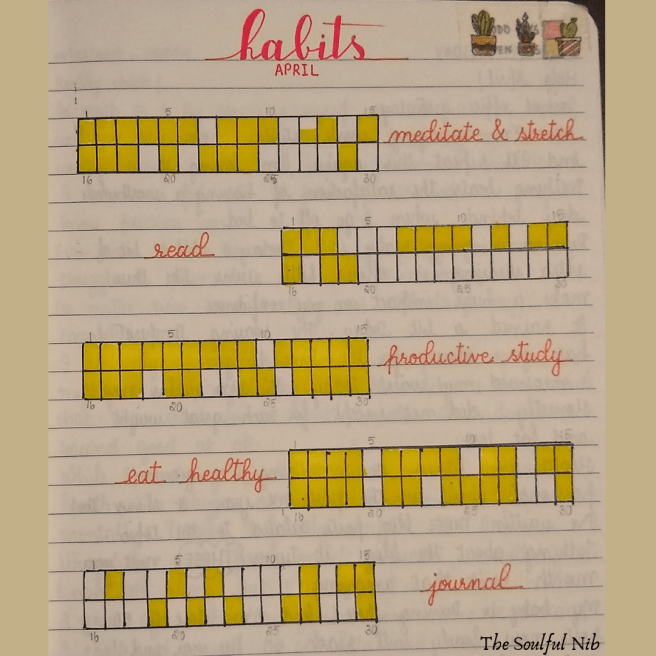 habits
APRIL
1 5 10 15
meditate & stretch
16 20 25 30
1 5 10 15
read
16 20 25 30
5 10 15
productive study
16 20 25 30
1 5
eat healthy
16 20 25 30
5 10 15
journal
16 20 25 30
The Soulful Nib